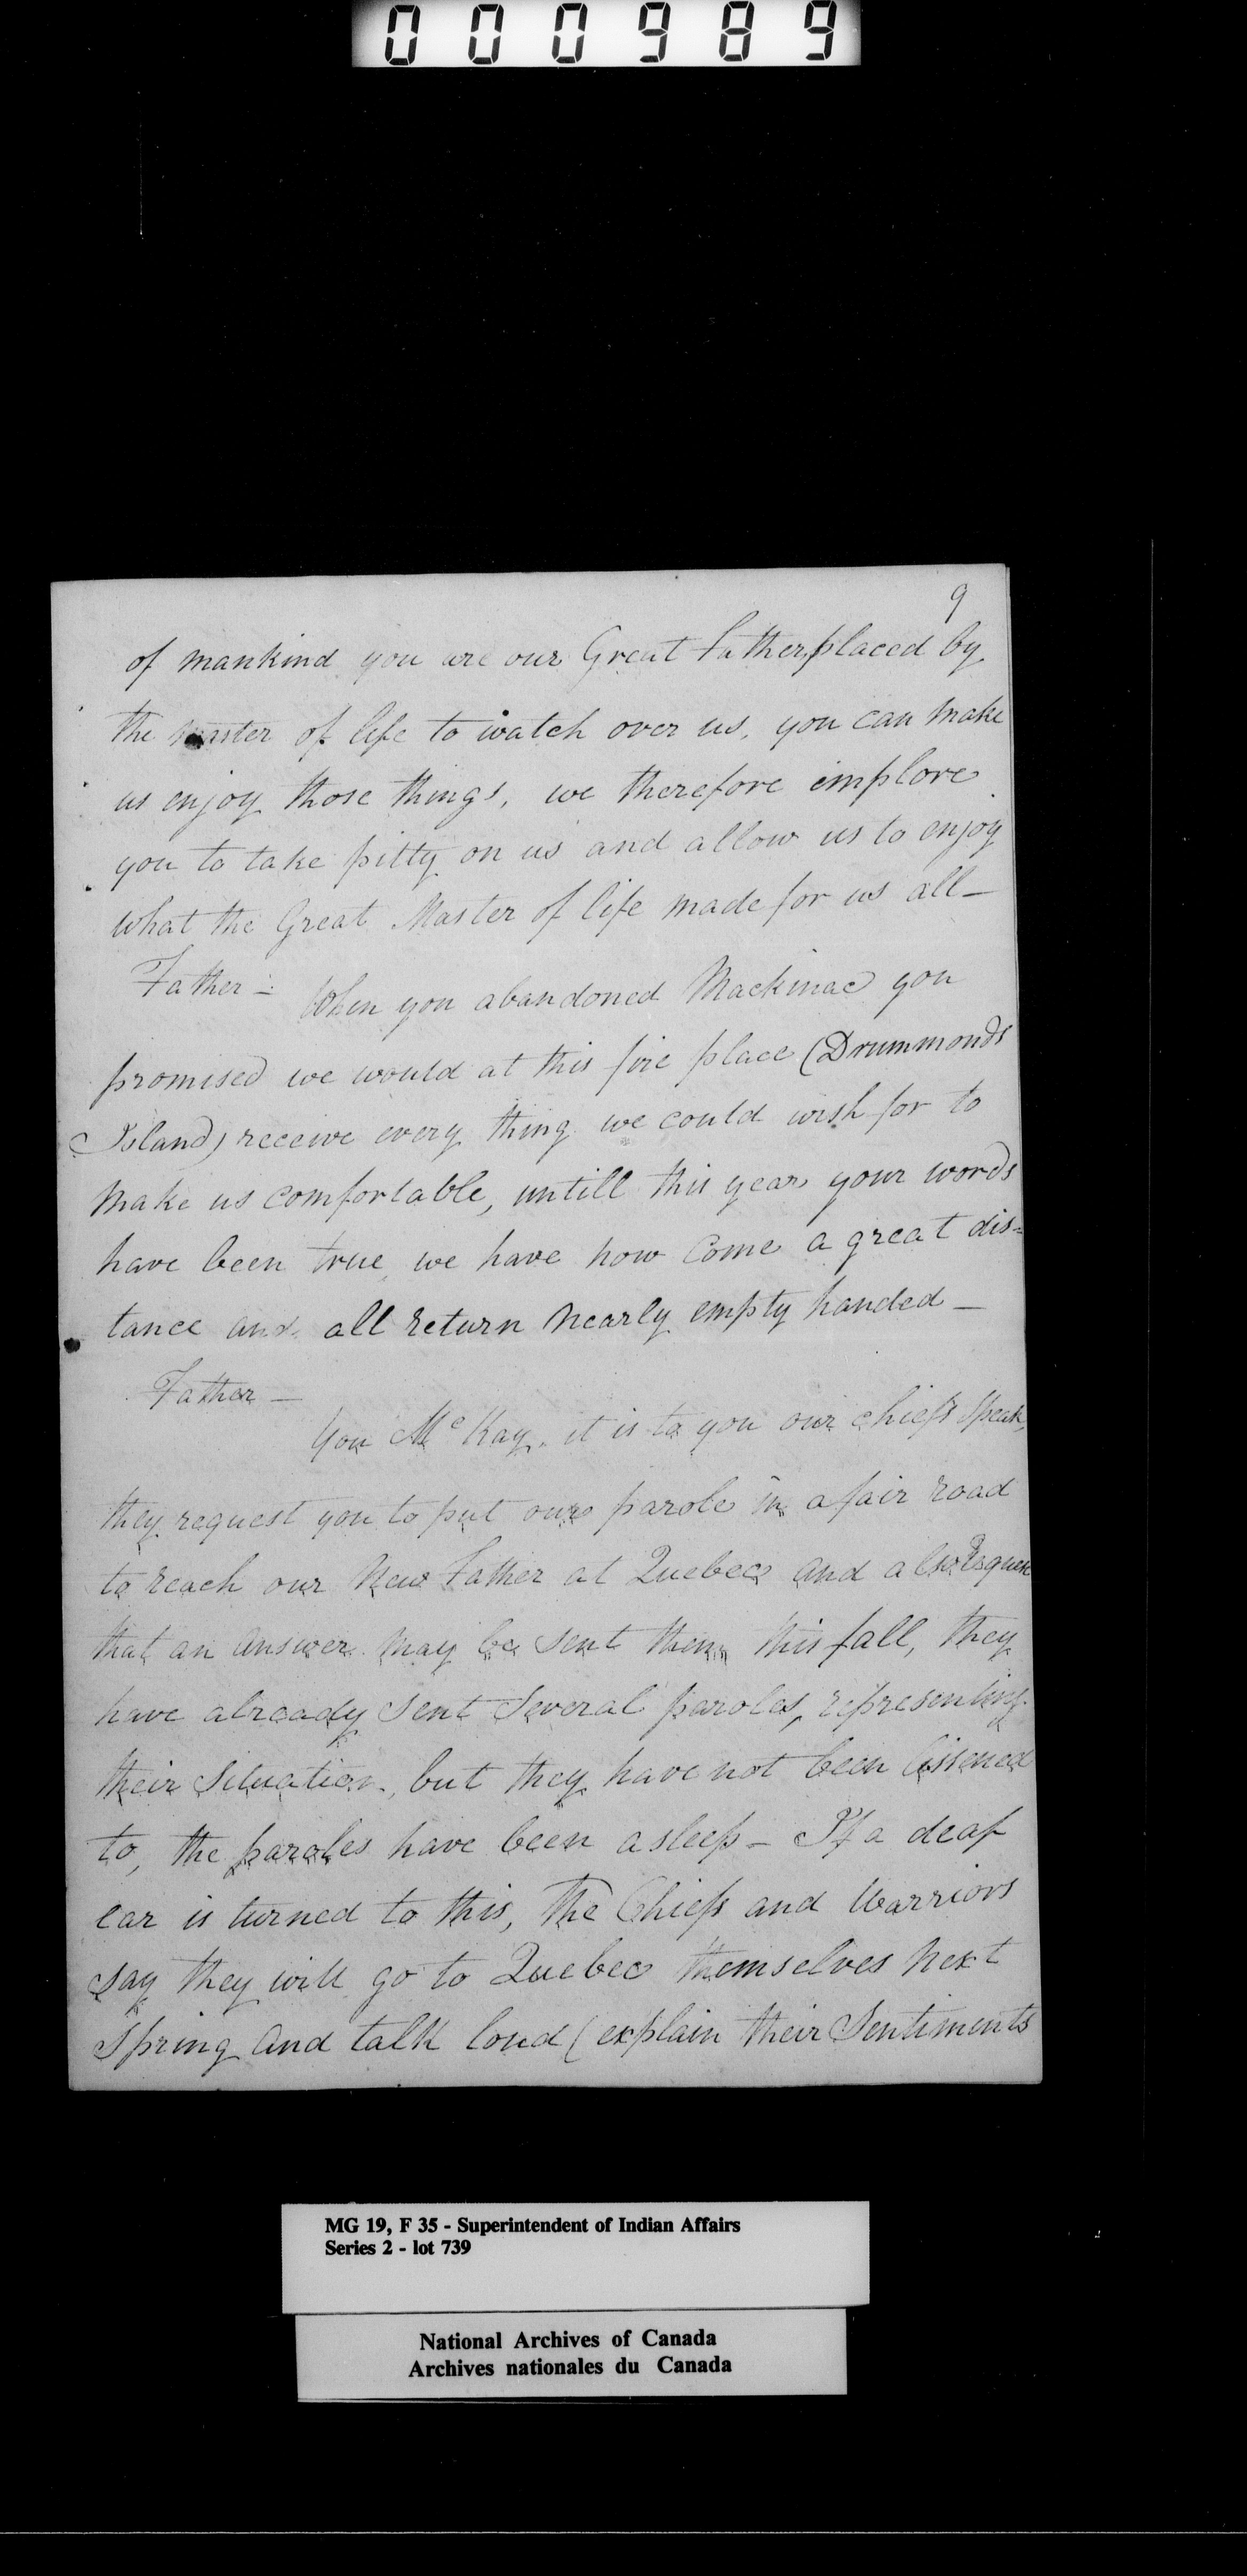 000989
9
of mankind you are our Great Father, placed by
the master of life to watch over us, you can make
us enjoy those things, we therefore implore
you to take pitty on us and allow us to enjoy
what the Great Master of life made for us all—
Father — When you abandoned Mackinac you
promised we would at this fire place (Drummonds
Island) receive every thing we could wish for to
make us comfortable, untill this year your words
have been true we have now Come a great dis=
tance and all return nearly empty handed—
Father—
You McKay, it is to you our chiefs speak,
they request you to put our parole in a fair road
to reach our New Father at Quebec and also request
that an answer may be sent them this fall, they
have already sent several paroles, representing
their situation, but they have not been lissened
to, the paroles have been asleep— If a deaf
ear is turned to this, The Chiefs and Warriors
say they will go to Quebec themselves next
Spring and talk loud (explain their Sentiments
MG 19, F 35 - Superintendent of Indian Affairs
Series 2 - lot 739
National Archives of Canada
Archives nationales du Canada